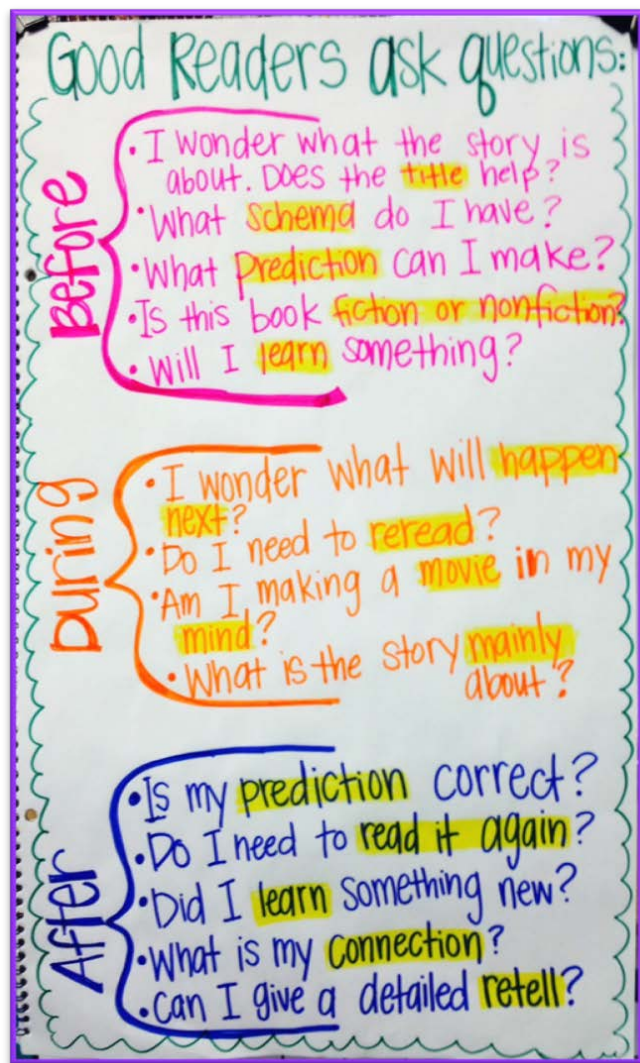 Good Readers ask questions:
Before
• I wonder what the story is
about. Does the title help?
• What schema do I have?
• What prediction can I make?
• Is this book fiction or nonfiction?
• Will I learn something?
During
• I wonder what will happen
next?
• Do I need to reread?
• Am I making a movie in my
mind?
• What is the story mainly
about?
After
• Is my prediction correct?
• Do I need to read it again?
• Did I learn something new?
• What is my connection?
• Can I give a detailed retell?